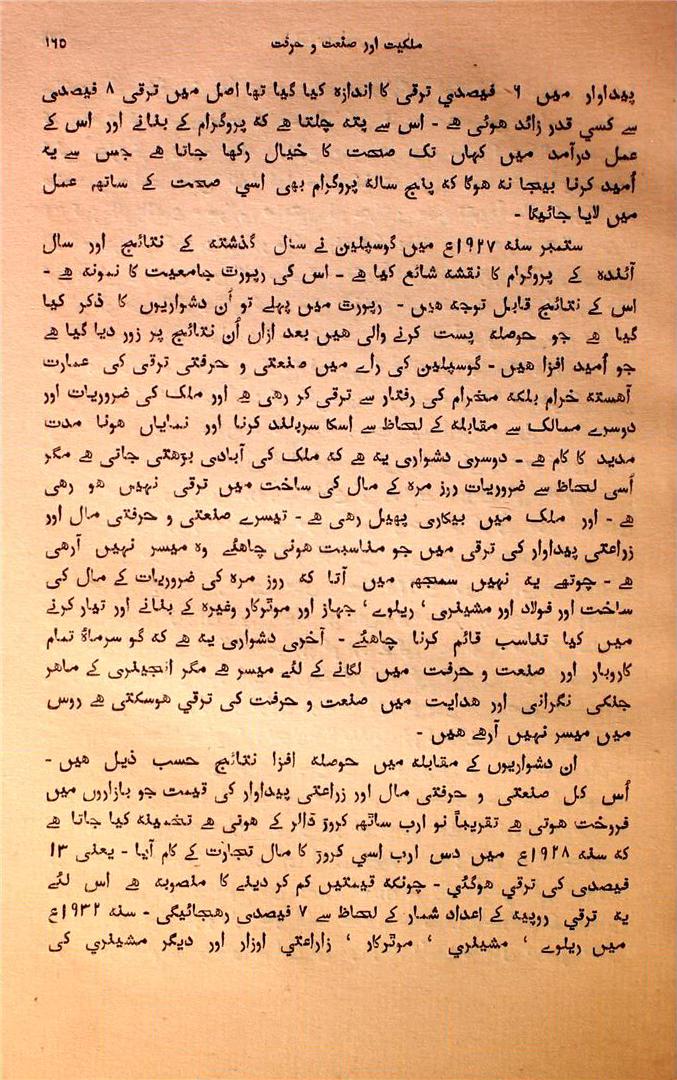 ملکیت اور صنعت و حرفت ۱۶۵
پیداوار میں ۶ فیصدی ترقی کا اندازہ کیا گیا تھا اصل میں ترقی ۸ فیصدی
سے کسی قدر زائد ہوئی ہے - اس سے پتہ چلتا ہے کہ پروگرام کے بنانے اور اس کے
عمل درآمد میں کہاں تک صحت کا خیال رکھا جاتا ہے جس سے یہ
اُمید کرنا بیجا نہ ہوگا کہ پنج سالہ پروگرام بھی اسی صحت کے ساتھ عمل
میں لایا جائیگا -
ستمبر سنہ ۱۹۲۷ع میں گوسپلین نے سال گذشتہ کے نتائج اور سال
آئندہ کے پروگرام کا نقشہ شائع کیا ہے - اس کی رپورٹ جامعیت کا نمونہ ہے -
اس کے نتائج قابل توجہ ہیں - رپورٹ میں پہلے تو اُن دشواریوں کا ذکر کیا
گیا ہے جو حوصلہ پست کرنے والی ہیں بعد ازاں اُن نتائج پر زور دیا گیا ہے
جو اُمید افزا ہیں - گوسپلین کی راے میں صنعتی و حرفتی ترقی کی عمارت
آہستہ خرام بلکہ مخرام کی رفتار سے ترقی کر رہی ہے اور ملک کی ضروریات اور
دوسرے ممالک سے مقابلہ کے لحاظ سے اسکا سربلند کرنا اور نمایاں ہونا مدت
مدید کا کام ہے - دوسری دشواری یہ ہے کہ ملک کی آبادی بڑھتی جاتی ہے مگر
اُسی لحاظ سے ضروریات روز مرہ کے مال کی ساخت میں ترقی نہیں ہو رہی
ہے - اور ملک میں بیکاری پھیل رہی ہے - تیسرے صنعتی و حرفتی مال اور
زراعتی پیداوار کی ترقی میں جو مناسبت ہونی چاہئے وہ میسر نہیں آرہی
ہے - چوتھے یہ نہیں سمجھہ میں آتا کہ روز مرہ کی ضروریات کے مال کی
ساخت اور فولاد اور مشینری ' ریلوے ' جہاز اور موٹرکار وغیرہ کے بنانے اور تیار کرنے
میں کیا تناسب قائم کرنا چاہئے - آخری دشواری یہ ہے کہ گو سرمایۂ تمام
کاروبار اور صنعت و حرفت میں لگانے کے لئے میسر ہے مگر انجینری کے ماہر
جنکی نگرانی اور ہدایت میں صنعت و حرفت کی ترقی ہوسکتی ہے روس
میں میسر نہیں آرہے ہیں -
ان دشواریوں کے مقابلہ میں حوصلہ افزا نتائج حسب ذیل ہیں -
اُس کل صنعتی و حرفتی مال اور زراعتی پیداوار کی قیمت جو بازاروں میں
فروخت ہوتی ہے تقریباً نو ارب ساٹھہ کروڑ ڈالر کے ہوتی ہے تخمینہ کیا جاتا ہے
کہ سنہ ۱۹۲۸ع میں دس ارب اسی کروڑ کا مال تجارت کے کام آیا - یعنی ۱۳
فیصدی کی ترقی ہوگئی - چونکہ قیمتیں کم کر دینے کا منصوبہ ہے اس لئے
یہ ترقی روپیہ کے اعداد شمار کے لحاظ سے ۷ فیصدی رھجائیگی - سنہ ۱۹۳۲ع
میں ریلوے ' مشینری ' موٹرکار ' زاراعتی اوزار اور دیگر مشینری کی